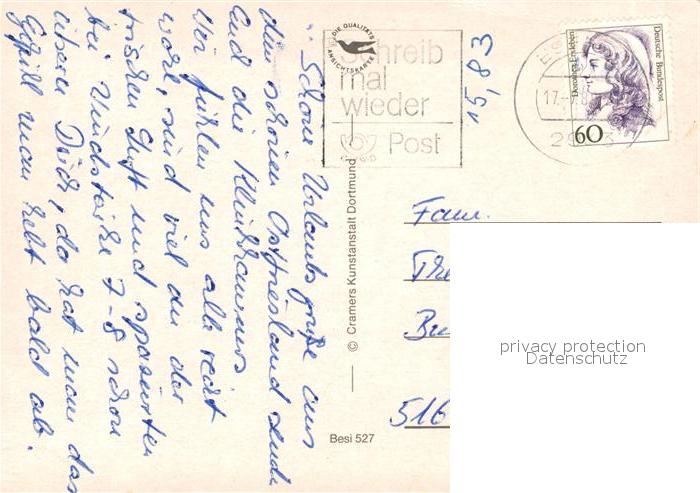 Schöne Urlaubsgrüße aus
dem schönen Ostfriesland
Und die Kleinkrumms
Wir fühlen uns alle recht
wohl, sind viel an der
frischen Luft und spazierten
bei Windstärke 7-8 schon
Deich, da hat man das
Gefühl man hebt bald ab.
DIE QUALITÄTS
ANSICHTSKARTE
Schreib
mal
wieder
Post
15,83
60
Dorothea Erxleben
Deutsche Bundespost
© Cramers Kunstanstalt Dortmund
Besi 527
Fam.
516
privacy protection
Datenschutz